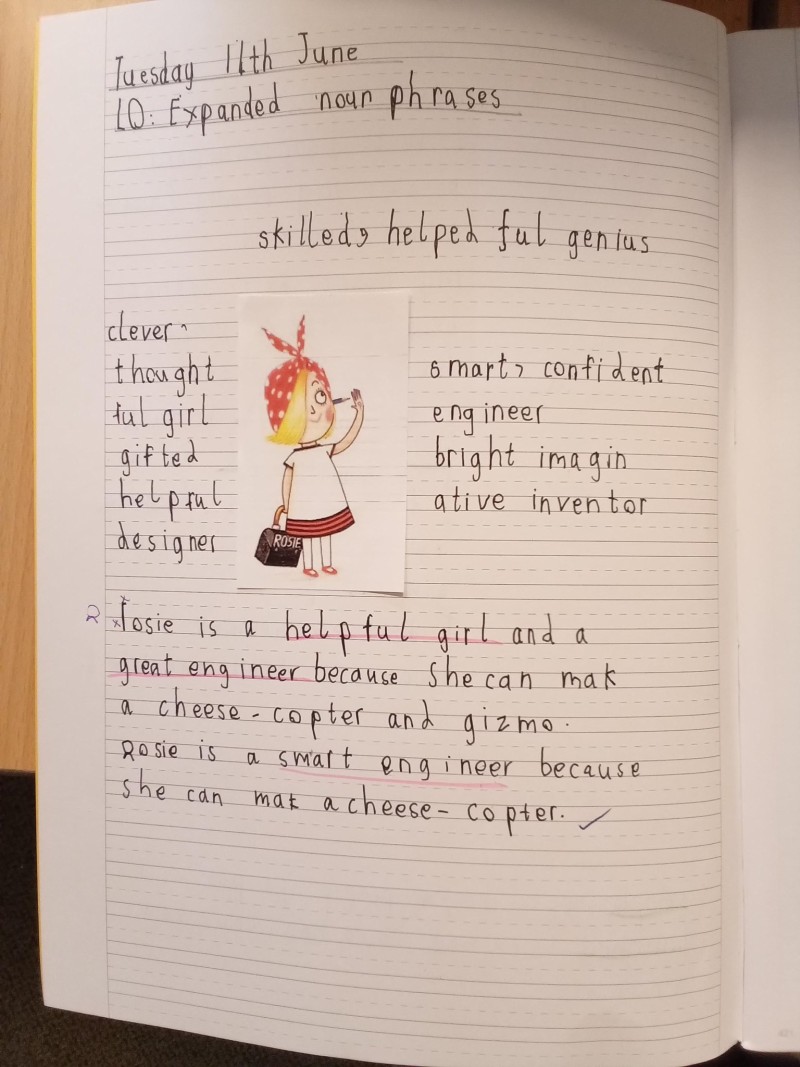 Tuesday 11th June
LO: Expanded noun phrases
skilled, helped ful genius
clever,
thought
ful girl
gifted
helpful
designer
ROSIE
smart, confident
engineer
bright imagin
ative inventor
R rosie is a helpful girl and a
great engineer because She can mak
a cheese-copter and gizmo.
Rosie is a smart engineer because
she can mak a cheese-copter.